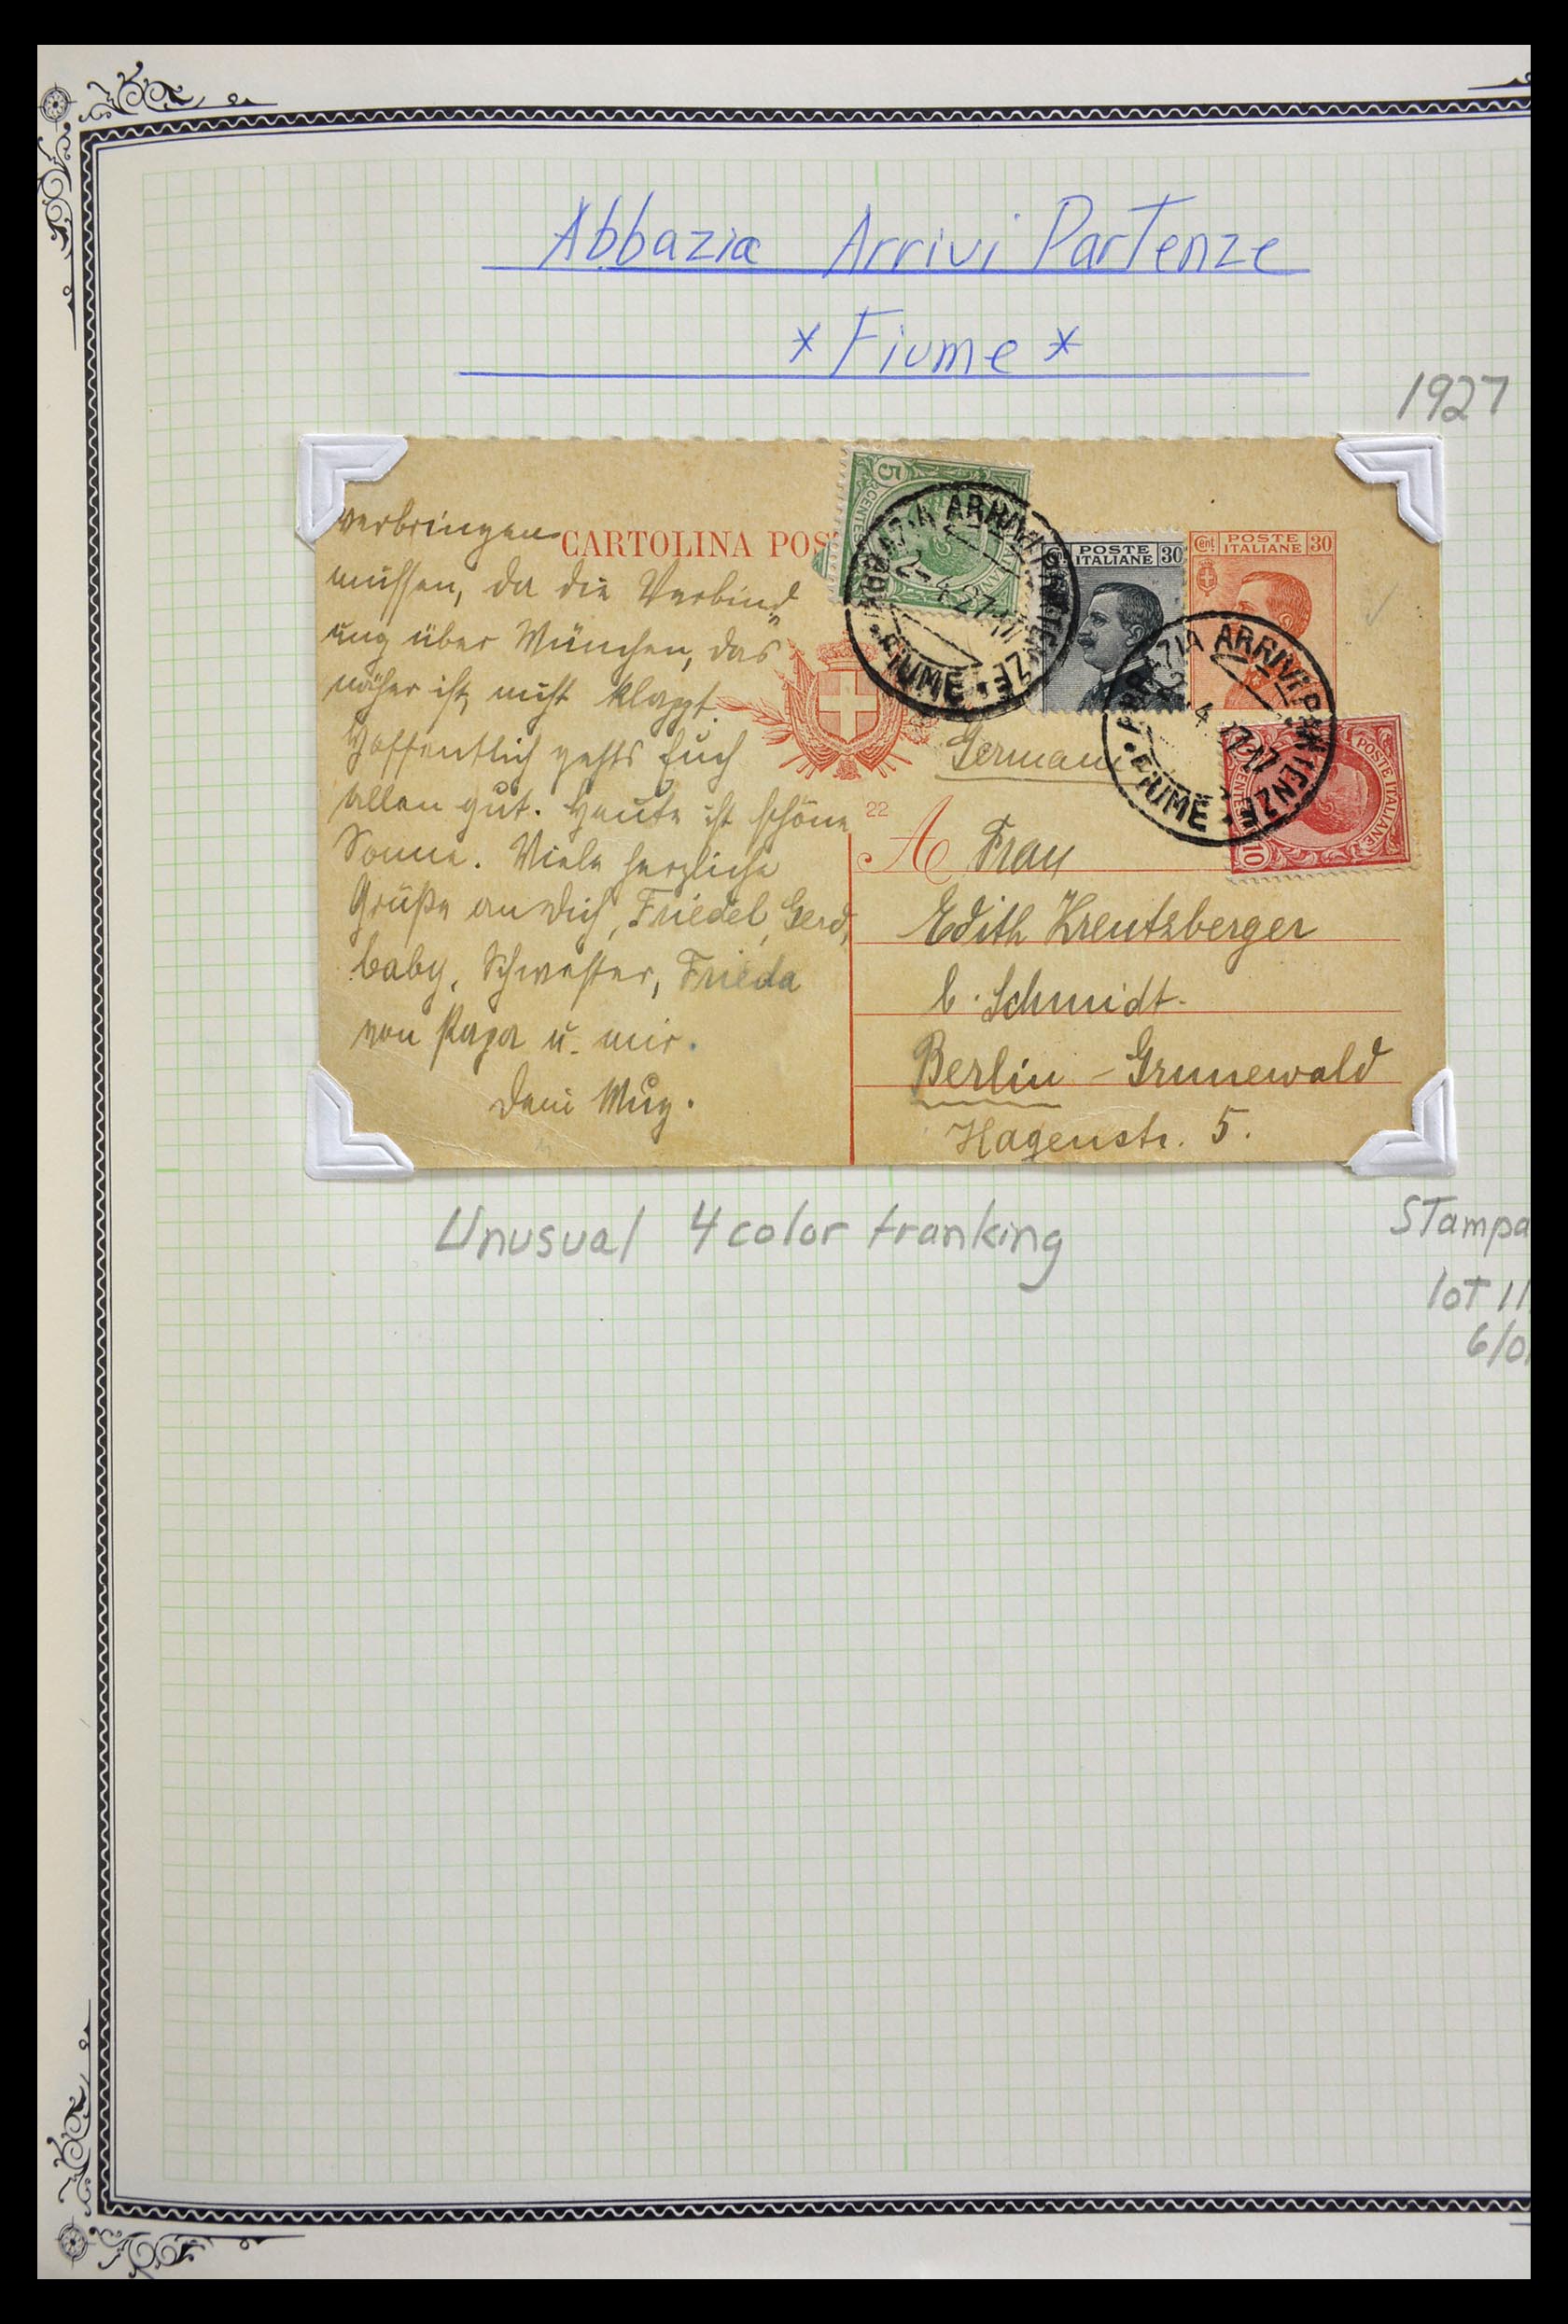 Abbazia Arrivi Partenze
* Fiume *
1927
verbringen
müssen, da die Verbind
ung über München, das
näher ist, nicht klappt.
Hoffentlich gehts Euch
allen gut. Heute ist schöne
Sonne. Viele herzliche
Grüße an Dich, Friedel, Gerd,
baby, Schwester, Frieda
von Papa u. mir.
CARTOLINA POS
5 CENTES
POSTE ITALIANE 30
Cent POSTE ITALIANE 30
POSTE ITALIANE
CENTE 10
ABBAZIA ARRIVI PARTENZE
2-4 27-17
• FIUME •
ARRIVI PARTENZE
2 4 27-17
• FIUME •
German
22
A Frau
Edith Kreutzberger
b. Schmidt.
Berlin - Grunewald
Hagenstr. 5.
Unusual 4 color franking
STampa
loT 11
6/0